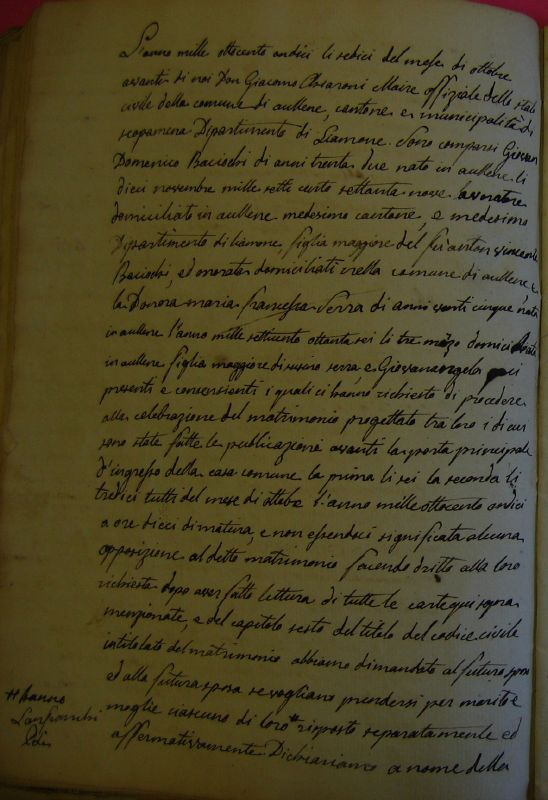 L'anno mille ottocento undici li sedici del mese di ottobre
avanti di noi Don Giacomo Chiaroni Maire offiziale dello stato
civile della comune di aullene, cantone e municipalità di
scopamena Dipartimento di Liamone. Sono comparsi Giovan
Domenico Baciochi di anni trenta due nato in aullene li
dieci novembre mille setti cento settanta nove lavoratore
domiciliato in aullene medesimo cantone, e medesimo
Dipartimento di Liamone, figlio maggiore del fu anton vincente
Baciochi, ed onorata domiciliati nella comune di aullene, e
la Donora maria francesca Serra di anni venti cinque nata
in aullene l'anno mille settecento ottanta sei li tre marzo domiciliata
in aullene figlia maggiore di serra e Giovanangela qui
presenti e consensienti i quali ci hanno richiesto di procedere
alla celebrazione del matrimonio progettato tra loro i di cui
sono state fatte le publicazioni avanti la porta principale
d'ingresso della casa comune la prima li sei la seconda li
tredici tutti del mese di ottobre l'anno mille ottocento undici
a ore dieci di matina, e non essendoci significata alcuna
opposizione al detto matrimonio facendo dritto alla loro
richiesta dopo aver fatto lettura di tutte le carte qui sopra
menzionate, e del capitolo sesto del titolo del codice civile
intitolato del matrimonio abbiamo dimandato al futuro sposo
ed alla futura sposa se vogliano prendersi per marito e
moglie ciascuno di loro # risposto separatamente ed
affermativamente Dichiariamo a nome della
# hanno